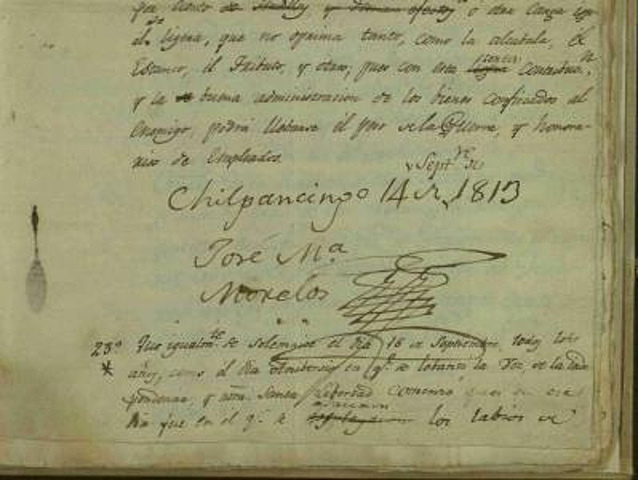 por ciento de
él ligera, que no oprima tanto, como la alcabala, el
Estanco, el Tributo, y otros, pues con esta ligera corta Contribucn.
y la buena administracion de los bienes confiscados al
Enemigo, podrá llebarse el peso de la Guerra, y honora-
rios de Empleados.
Septre
Chilpancingo 14 de 1813
José Ma
Morelos
23º Que igualmte se solemnice el dia 16 de Septiembre todos los
años, como el dia Anibersario en q. se lebantó la Voz de la Inde
pendencia, y nra. Santa Libertad comenzó, pues en ese
dia fue en el q. se los labios de